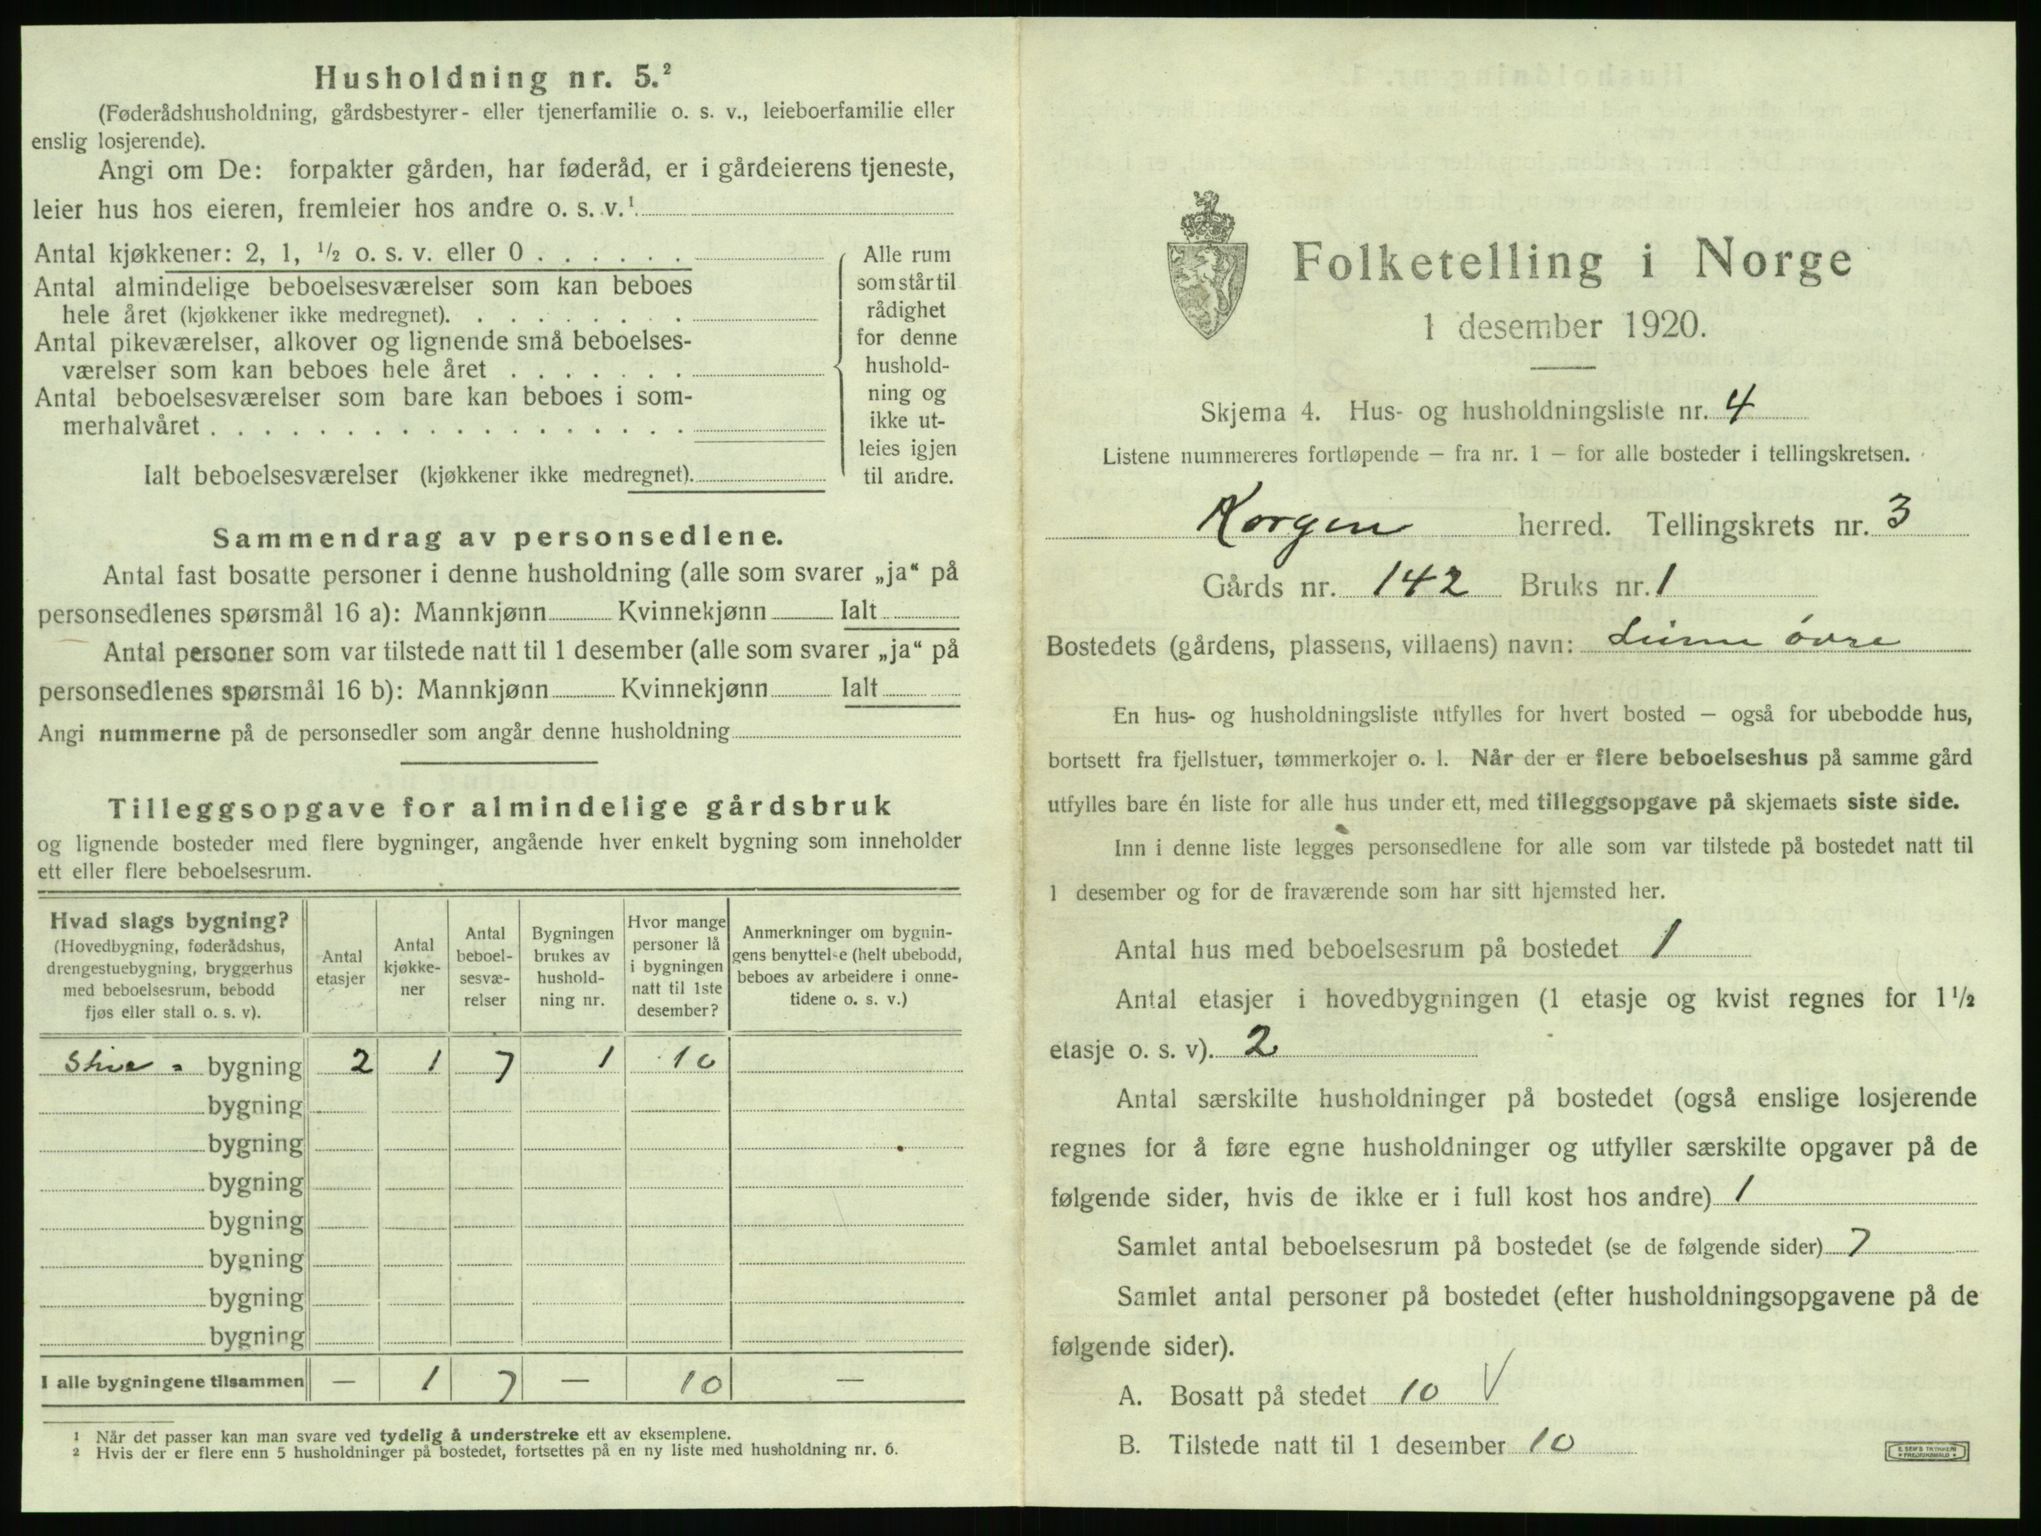 Husholdning nr. 5.²
(Føderådshusholdning, gårdsbestyrer- eller tjenerfamilie o. s. v., leieboerfamilie eller
enslig losjerende).
Angi om De: forpakter gården, har føderåd, er i gårdeierens tjeneste,
leier hus hos eieren, fremleier hos andre o. s. v.¹
Antal kjøkkener: 2, 1, ½ o. s. v. eller 0
Antal almindelige beboelsesværelser som kan beboes
hele året (kjøkkener ikke medregnet).
Antal pikeværelser, alkover og lignende små beboelses-
værelser som kan beboes hele året
Antal beboelsesværelser som bare kan beboes i som-
merhalvåret
Ialt beboelsesværelser (kjøkkener ikke medregnet).
Alle rum
som står til
rådighet
for denne
hushold-
ning og
ikke ut-
leies igjen
til andre.
Sammendrag av personsedlene.
Antal fast bosatte personer i denne husholdning (alle som svarer „ja“ på
personsedlenes spørsmål 16 a): Mannkjønn Kvinnekjønn Ialt
Antal personer som var tilstede natt til 1 desember (alle som svarer „ja“ på
personsedlenes spørsmål 16 b): Mannkjønn Kvinnekjønn Ialt
Angi nummerne på de personsedler som angår denne husholdning
Tilleggsopgave for almindelige gårdsbruk
og lignende bosteder med flere bygninger, angående hver enkelt bygning som inneholder
ett eller flere beboelsesrum.
Hvad slags bygning?
(Hovedbygning, føderådshus,
drengestuebygning, bryggerhus
med beboelsesrum, bebodd
fjøs eller stall o. s. v).
Antal
etasjer
Antal
kjøkke-
ner
Antal
beboel-
sesvæ-
relser
Bygningen
brukes av
hushold-
ning nr.
Hvor mange
personer lå
i bygningen
natt til 1ste
desember?
Anmerkninger om bygnin-
gens benyttelse (helt ubebodd,
beboes av arbeidere i onne-
tidene o. s. v.)
bygning 2 1 7 1 10
bygning
bygning
bygning
bygning
bygning
bygning
bygning
I alle bygningene tilsammen — 1 7 — 10 —
¹ Når det passer kan man svare ved tydelig å understreke ett av eksemplene.
² Hvis der er flere enn 5 husholdninger på bostedet, fortsettes på en ny liste med husholdning nr. 6.
Folketelling i Norge
1 desember 1920.
Skjema 4. Hus- og husholdningsliste nr. 4
Listene nummereres fortløpende — fra nr. 1 — for alle bosteder i tellingskretsen.
Korgen herred. Tellingskrets nr. 3
Gårds nr. 142 Bruks nr. 1
Bostedets (gårdens, plassens, villaens) navn: øvre
En hus- og husholdningsliste utfylles for hvert bosted — også for ubebodde hus,
bortsett fra fjellstuer, tømmerkojer o. l. Når der er flere beboelseshus på samme gård
utfylles bare én liste for alle hus under ett, med tilleggsopgave på skjemaets siste side.
Inn i denne liste legges personsedlene for alle som var tilstede på bostedet natt til
1 desember og for de fraværende som har sitt hjemsted her.
Antal hus med beboelsesrum på bostedet 1
Antal etasjer i hovedbygningen (1 etasje og kvist regnes for 1½
etasje o. s. v). 2
Antal særskilte husholdninger på bostedet (også enslige losjerende
regnes for å føre egne husholdninger og utfyller særskilte opgaver på de
følgende sider, hvis de ikke er i full kost hos andre) 1
Samlet antal beboelsesrum på bostedet (se de følgende sider) 7
Samlet antal personer på bostedet (efter husholdningsopgavene på de
følgende sider).
A. Bosatt på stedet 10 V
B. Tilstede natt til 1 desember 10